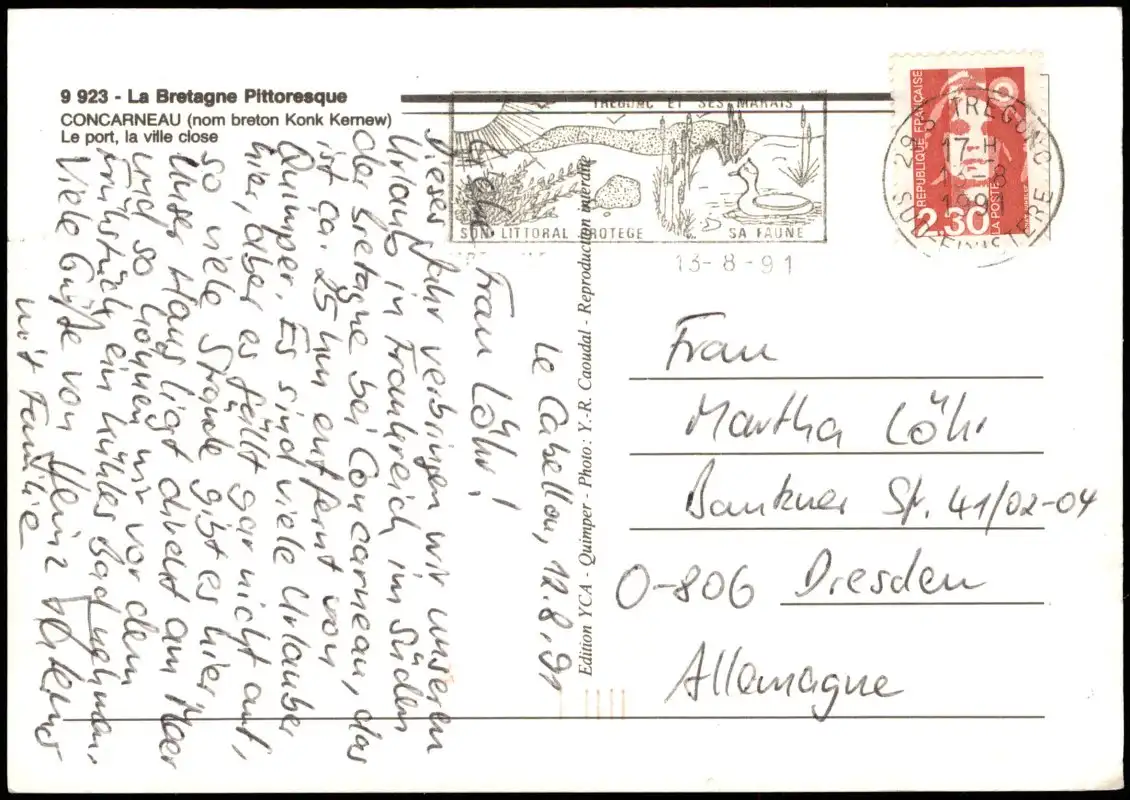 9 923 - La Bretagne Pittoresque
CONCARNEAU (nom breton Konk Kernew)
Le port, la ville close
TREGUNC ET SES MARAIS
SON LITTORAL PROTEGE SA FAUNE
13-8-91
REPUBLIQUE FRANÇAISE
2.30
LA POSTE
29-S TREGUNC
17-H
13-8
1991
SUD-FINISTERE
Edition YCA - Quimper - Photo: Y.-R. Caoudal - Reproduction interdite
Le Cabellou, 12.8.91
Frau Löhr!
Dieses Jahr verbringen wir unseren
Urlaub in Frankreich im Süden
der Bretagne bei Concarneau, das
ist ca. 25 km entfernt von
Quimper. Es sind viele Urlauber
hier, aber es fällt gar nicht auf,
so viele Strände gibt es hier.
Unser Haus liegt direkt am Meer
und so können wir vor dem
Frühstück ein kühles Bad nehmen.
Viele Grüße von Heinz
mit Familie
Frau
Martha Löhr
Bautzner Str. 41/02-04
O-806 Dresden
Allemagne